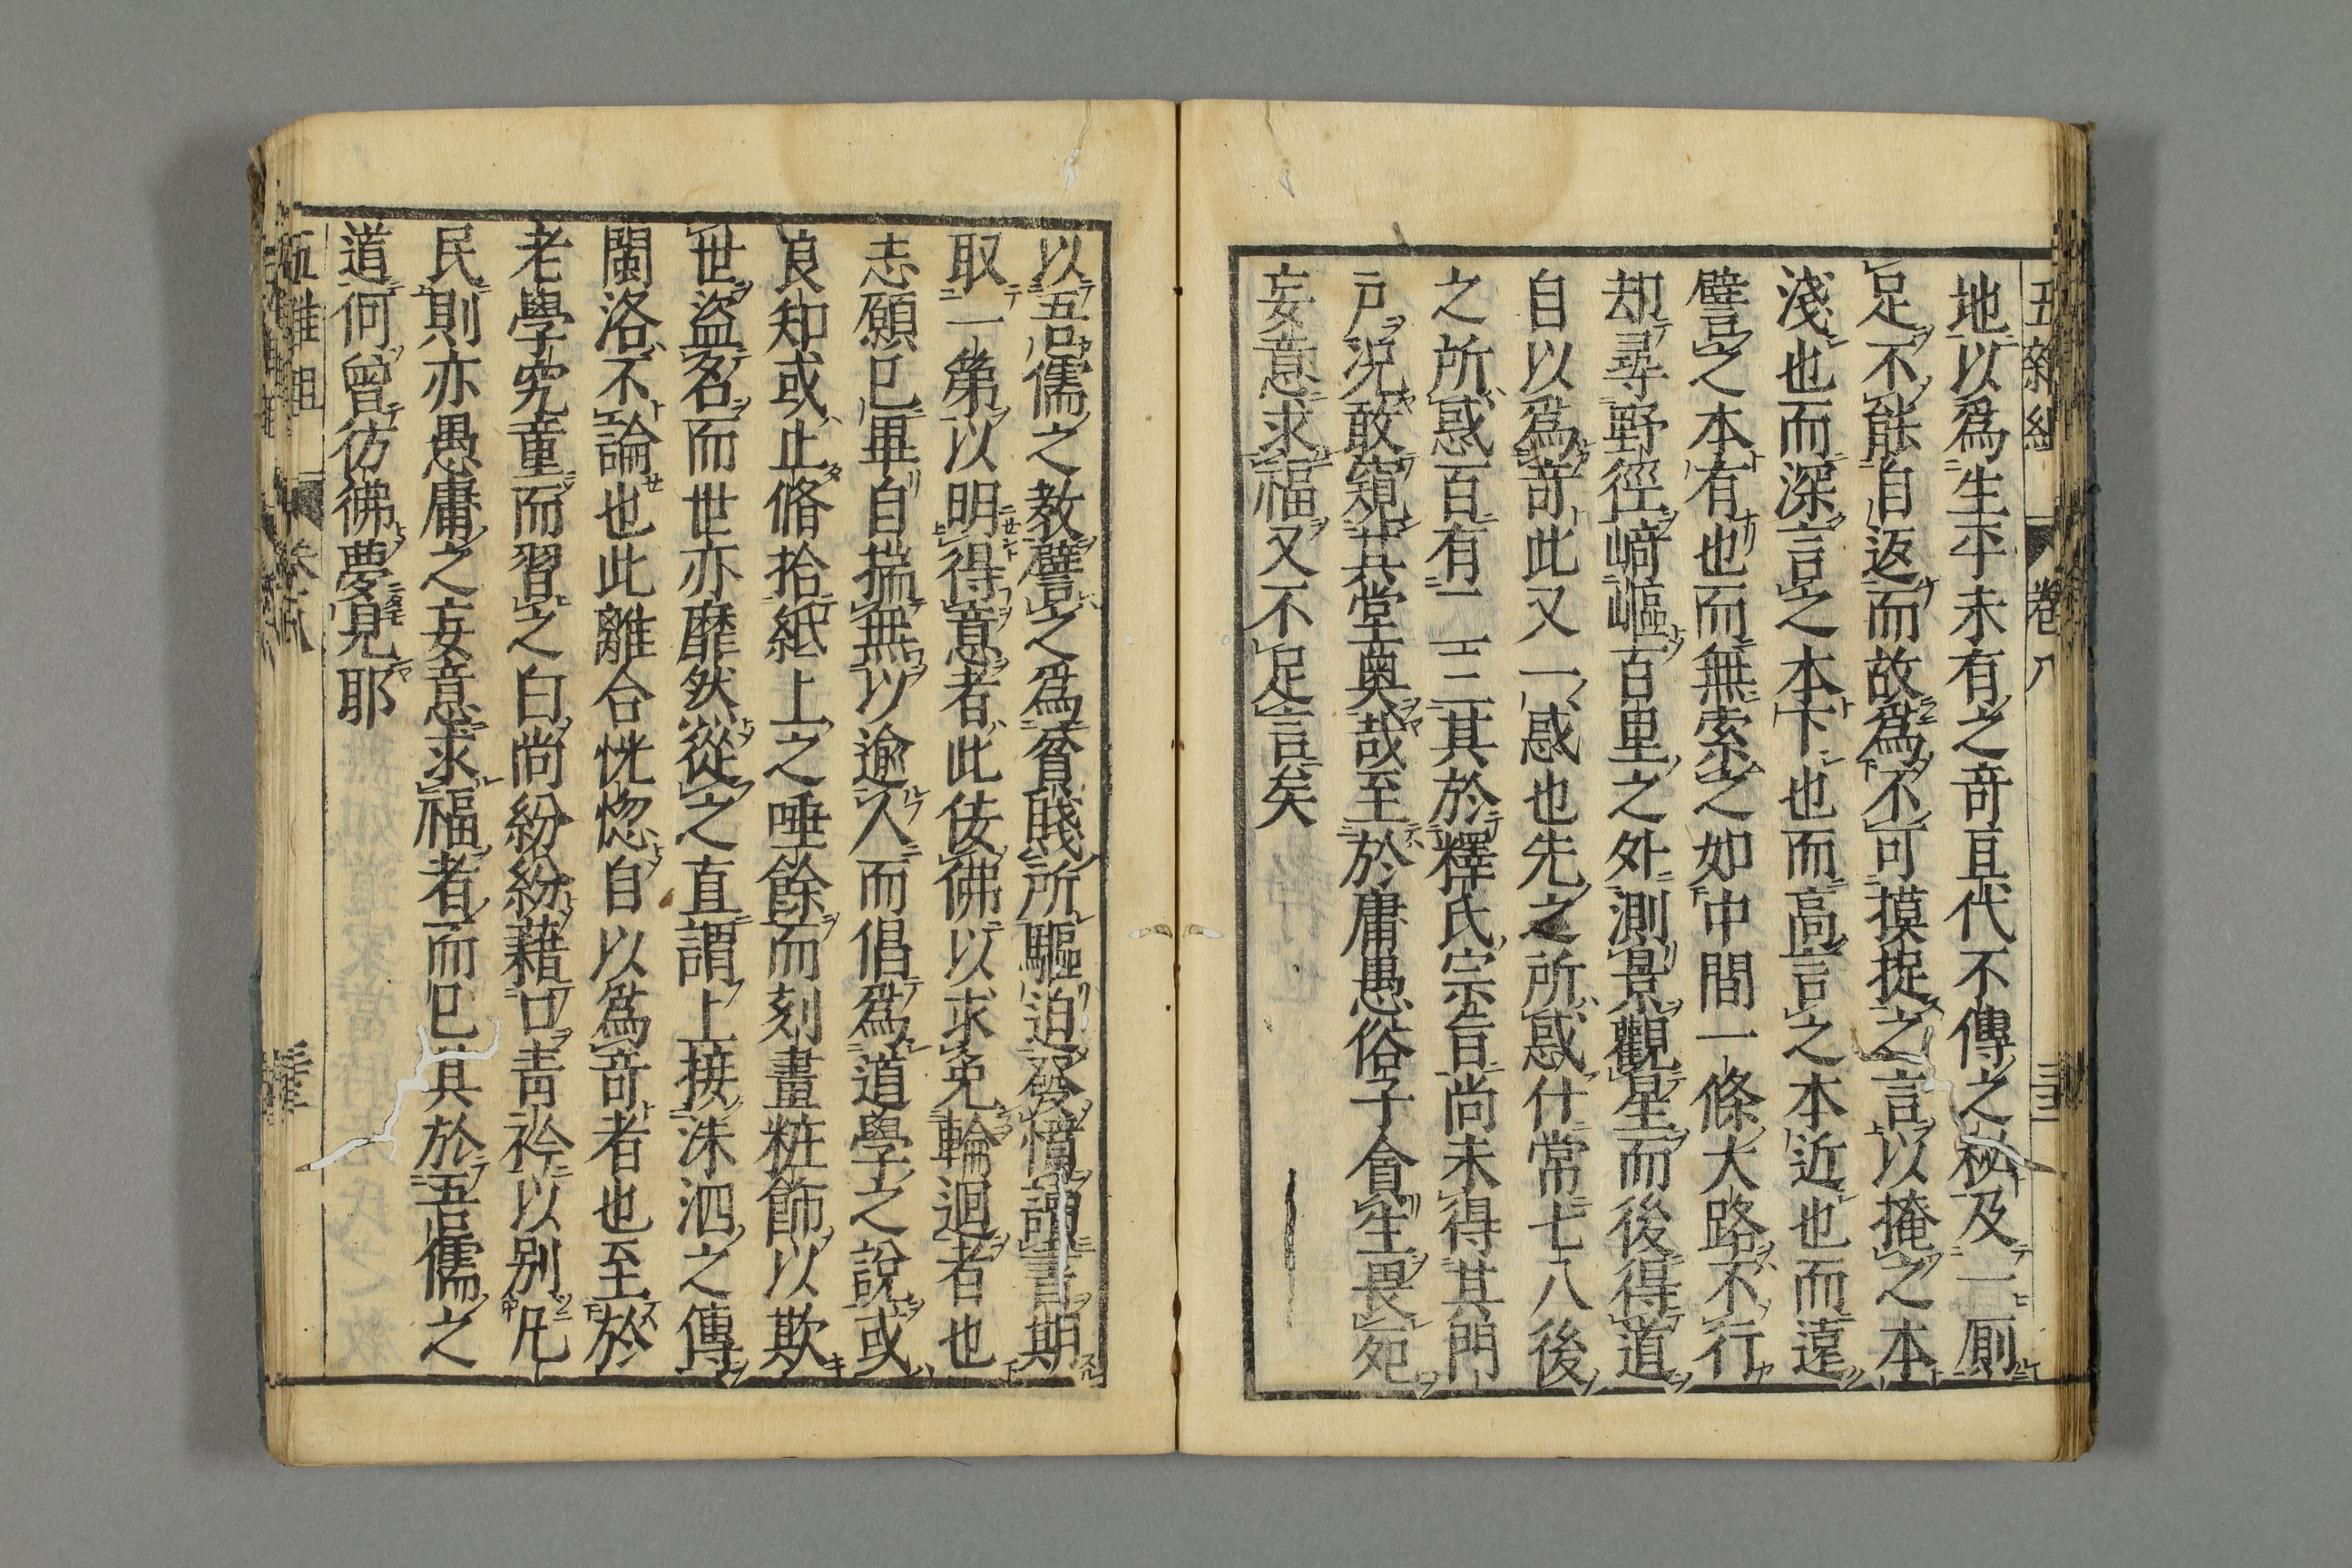 五雜組 卷八 三十三
地以為生平未有之奇亘代不傳之秘及一厠
足不能自返而故為不可摸捉之言以掩之本
淺也而深言之本下也而高言之本近也而遠
譬之本有也而無索之如中間一條大路不行
却尋野徑﨑嶇百里之外測景觀星而後得道
自以為奇此又一惑也先之所惑什常七八後
之所惑百有一二三其於釋氏宗旨尚未得其門
戸况敢窺其堂奧哉至於庸愚俗子貪生畏死
妄意求福又不足言矣
以吾儒之教譬之為貧賤所驅迫發憤讀書期
取一第以明得意者此佞佛以求免輪迴者也
志願已畢自揣無以逾人而倡為道學之說或
良知或止脩拾紙上之唾餘而刻畫粧飾以欺
世盜名而世亦靡然從之直謂上接洙泗之傳
閩洛不論也此離合恍惚自以為奇者也至於
老學究童而習之白尚紛紛藉口青衿以别凡
民則亦愚庸之妄意求福者而已其於吾儒之
道何曾彷彿夢見耶